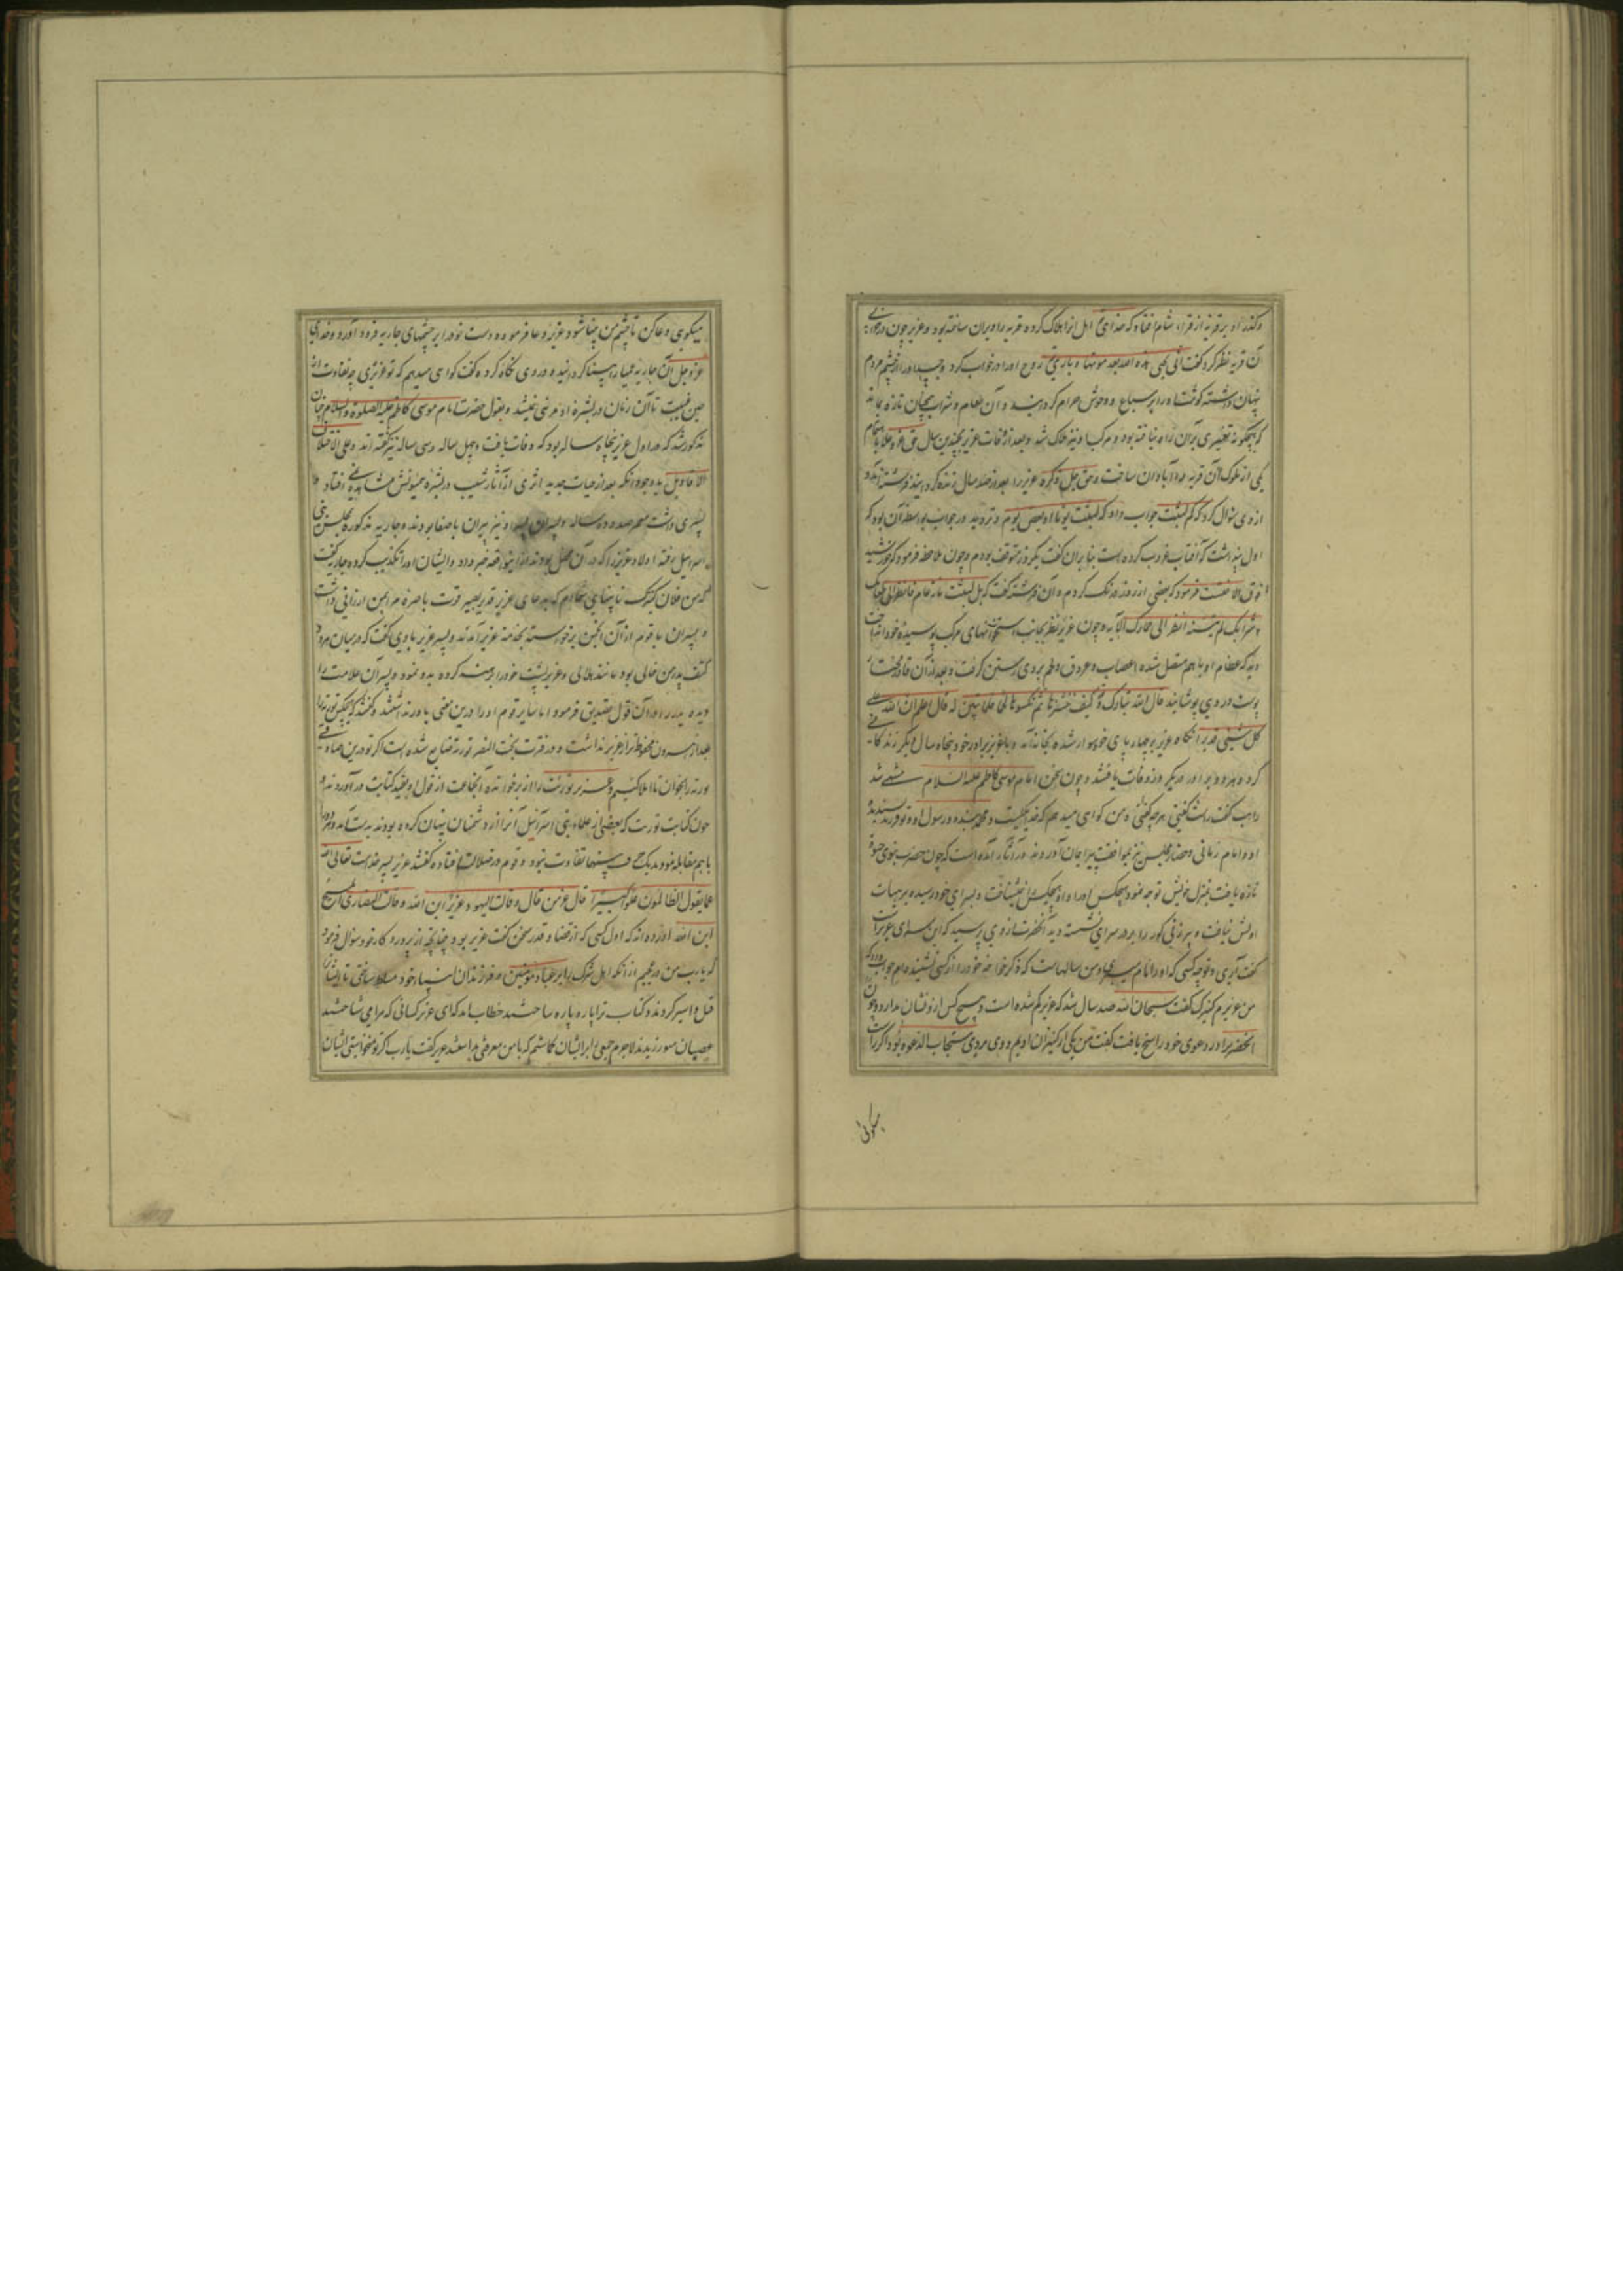 و گذر او بر قریهٔ از قراء شام افتاد که خدای اهل انرا هلاک کرده قریه را ویران ساخته بود و عزیر چون در خرابی
آن قریه نظر کرد گفت انی یحیی هذه الله بعد موتها و باری روح او را در خواب کرد و جسد او را از چشم مردم
پنهان داشته گوشت او را بر سباع و وحوش حرام گردانید و آن طعام و شراب همچنان تازه بماند
که هیچگونه تغییری بدان راه نیافته بود و مرکب او نیز هلاک شد و بعد از وفات عزیر بچندین سال حق عز و علا
یکی از ملوک آن قریه را آبادان ساخت و حق جل ذکره عزیر را بعد از صد سال زنده گردانید فرشته آمد و
از وی سؤال کرد که کم لبثت جواب داد که لبثت یوما او بعض یوم و تردید در جواب بواسطه آن بود که
اول پنداشت که آفتاب غروب کرده است بنابران گفت یکروز متوقف بودم و چون ملاحظه فرمود که خورشید
فرمود که بعضی از روز درنگ کردم و آن فرشته گفت که بل لبثت مایه عام فانظر الی طعامک
و شرابک لم یتسنه انظر الی حمارک الآیه و چون عزیر نظر بجانب استخوانهای مرکب پوسیده خود انداخت
دید که عظام او باهم متصل شده اعصاب و عروق و لحم بروی رستن گرفت و بعد از آن قادر
پوست در وی پوشانید قال الله تبارک و کیف ننشزها ثم نکسوها لحما فلما تبین له قال اعلم ان الله علی
کل شیئی قدیر انگاه عزیر بر چهارپای خود سوار شده بخانه آمد و با عزیز برادر خود پنجاه سال دیگر زندگانی
کرده هر دو برادر در یکروز وفات یافتند و چون سخن امام موسی کاظم علیه السلام منتهی شد
راهب گفت راست گفتی هرچه گفتی و من گواهی میدهم که خدا یکیست و محمد بنده و رسول او و تو فرزند پسندیده
او و امام زمانی و حضار مجلس نیز بموافقت پیر ایمان آوردند و در آثار آمده است که چون حضرت نبوی حیوة
تازه یافت بمنزل خویش توجه نمود هیچکس او را و او هیچکس را نمیشناخت و بسرای خود رسیده بر هیات
اولش نیافت و پیرزنی کور را بر در سرای نشسته دید آنحضرت از وی پرسید که این سرای عزیر است
گفت آری و تو چه کسی که او را نام میبری و من سالهاست که ذکر خواجه خود را از کسی نشنیده‌ام جواب داد که
من عزیرم کنیزک گفت سبحان الله صد سال شد که عزیر گم شده است و هیچ کس ازو نشان ندارد و چون
آنحضرت را در دعوی خود راسخ یافت گفت من یکی از کنیزان اویم و وی مردی مستجاب الدعوه بود اگر راست
میگوئی
میگویی دعا کن تا چشم من بینا شود عزیر دعا فرموده دست خود را بر چشمهای جاریه فرود آورد و خدای
عز و جل آن جاریه عمیا را بینا گردانیده در وی نگاه کرده گفت گواهی میدهم که تو عزیری چه تفاوت از
حین غیبت تا آن زمان در بشره او مرئی نمیشد و بقول حضرت امام موسی کاظم علیه الصلوة و السلام چنان
مذکور شد که در اول عزیر پنجاه ساله بود که وفات یافت و چهل ساله و سی ساله نیز گفته اند و علی الاختلاف
الاقاویل با وجود آنکه بعد از حیات جدید اثری از آثار شیب در بشره همیونش مشاهده نمی افتاد
پسری داشت معمر صد و ده ساله و پسران پسر او نیز پیران باصفا بودند و جاریه مذکوره بمجلس بنی
اسرائیل رفته اولاد عزیر را که در آن محفل بودند ازین قصه خبر داد و ایشان او را تکذیب کرده جاریه گفت
که من فلان کنیزک نابینای شماام که بدعای عزیر قدیر بصیر قوت باصره مرا بمن ارزانی داشت
و پسران با قوم از آن انجمن برخاسته بخدمت عزیر آمدند و پسر عزیر با وی گفت که در میان هر دو
کتف پدر من خالی بود مانند هلالی و عزیر پشت خود را برهنه کرده بدو نمود و پسران علامت را
دیده پدر را در آن قول تصدیق فرمود اما سایر قوم او را درین معنی باور نداشتند و گفتند که هیچکس توریة را
بعد از هرون محفوظ‌تر از عزیر نداشت و در فترت بخت النصر توریة ضایع شده است اگر تو درین صادقی
توریة را بخوان تا املا کنیم و عزیر توریت را از بر خوانده آنجماعت از قول او بقید کتابت درآوردند و
چون کتابت توریت که بعضی از علماء بنی اسرائیل آنرا از دشمنان پنهان کرده بودند بدست آمد و هر دو را
باهم مقابله نمودند یک حرف تفاوت نبود و قوم در ضلالت افتاده گفتند عزیر پسر خداست تعالی الله
عما یقول الظالمون علوا کبیرا قال عز من قال و قالت الیهود عزیر ابن الله و قالت النصاری المسیح
ابن الله آورده اند که اول کسی که از قضا و قدر سخن گفت عزیر بود چنانچه از پروردگار خود سؤال فرمود
که یا رب من در عجبم از آنکه اهل شرک را بر عباد مؤمنین و فرزندان انبیاء خود مسلط ساختی تا ایشان را
قتل و اسیر کردند و کتاب ترا پاره پاره ساختند خطاب آمد که ای عزیر کسانی که مرا می شناختند
عصیان می‌ورزیدند لاجرم جمعی را بر ایشان گماشتم که با من معرفتی نداشتند عزیر گفت یا رب اگر تو نخواستی ایشان